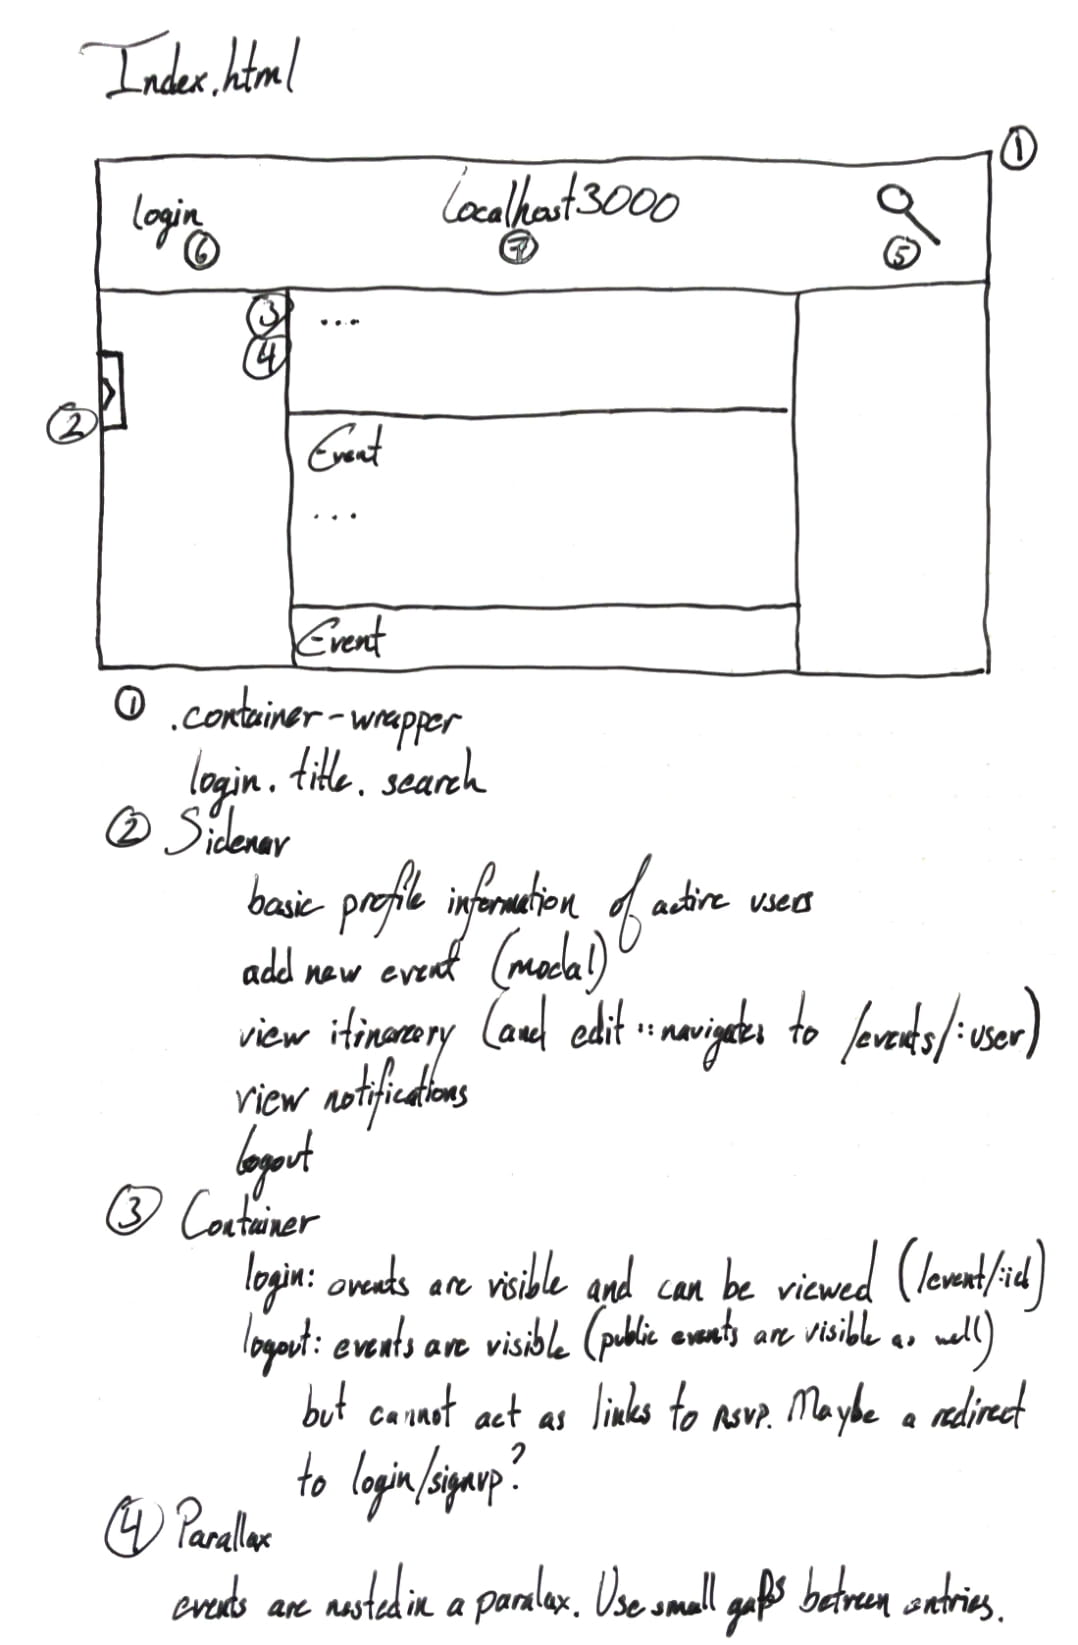 Index.html
①
login
Localhost3000
⑥
⑦
⑤
③
...
④
②
Event
...
Event
① .container-wrapper
login. title. search
② Sidenav
basic profile information of active users
add new event (modal)
view itinerery (and edit :: navigates to /events/:user)
view notifications
logout
③ Container
login: events are visible and can be viewed (/event/:id)
logout: events are visible (public events are visible as well)
but cannot act as links to RSVP. Maybe a redirect
to login/signup?
④ Parallax
events are nested in a paralax. Use small gaps between entries.